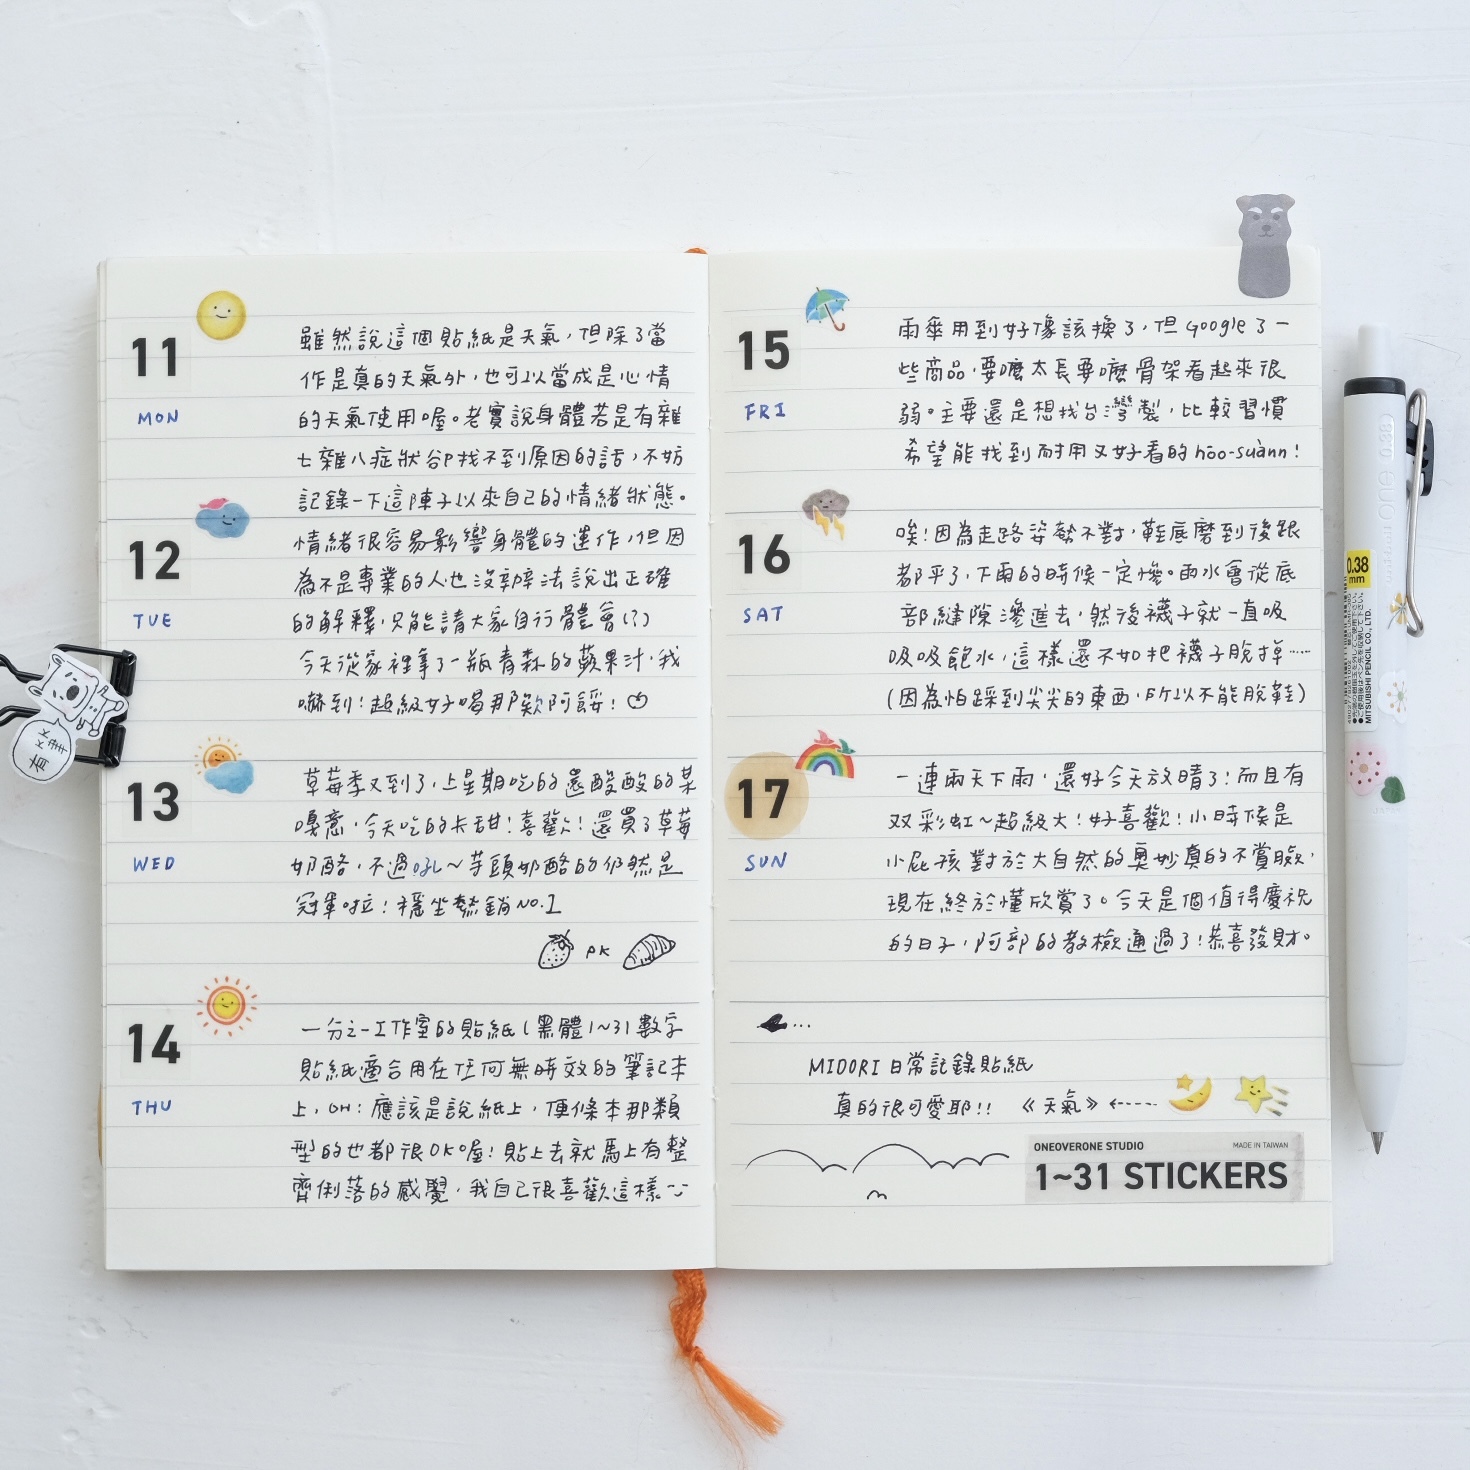 11
MON
雖然說這個貼紙是天氣，但除了當
作是真的天氣外，也可以當成是心情
的天氣使用喔。老實說身體若是有雜
七雜八症狀卻找不到原因的話，不妨
記錄一下這陣子以來自己的情緒狀態。
12
TUE
情緒很容易影響身體的運作，但因
為不是專業的人也沒辦法說出正確
的解釋，只能請大家自行體會(?)
今天從家裡拿了一瓶青森的蘋果汁，我
嚇到！超級好喝那欸阿諼！
13
WED
草莓季又到了，上星期吃的還酸酸的某
嘎意，今天吃的卡甜！喜歡！還買了草莓
奶酪，不過呢～芋頭奶酪的仍然是
冠軍啦！穩坐熱銷NO.1
PK
14
THU
一分之一工作室的貼紙(黑體1~31數字
貼紙適合用在任何無時效的筆記本
上，OH：應該是說紙上，便條本那類
型的也都很OK喔！貼上去就馬上有整
齊俐落的感覺，我自己很喜歡這樣
15
FRI
雨傘用到好像該換了，但Google了一
些商品，要嘛太長要嘛骨架看起來很
弱。主要還是想找台灣製，比較習慣
希望能找到耐用又好看的hōo-suànn！
16
SAT
唉！因為走路姿勢不對，鞋底磨到後跟
都平了，下雨的時候一定慘。雨水會從底
部縫隙滲進去，然後襪子就一直吸
吸吸飽水，這樣還不如把襪子脫掉……
(因為怕踩到尖尖的東西，所以不能脫鞋)
17
SUN
一連兩天下雨，還好今天放晴了！而且有
双彩虹～超級大！好喜歡！小時候是
小屁孩對於大自然的奧妙真的不賞臉，
現在終於懂欣賞了。今天是個值得慶祝
的日子，阿部的教檢通過了！恭喜發財。
...
MIDORI 日常記錄貼紙
真的很可愛耶!! 《天氣》
ONEOVERONE STUDIO
MADE IN TAIWAN
1~31 STICKERS
0.38
mm
MITSUBISHI PENCIL CO., LTD.